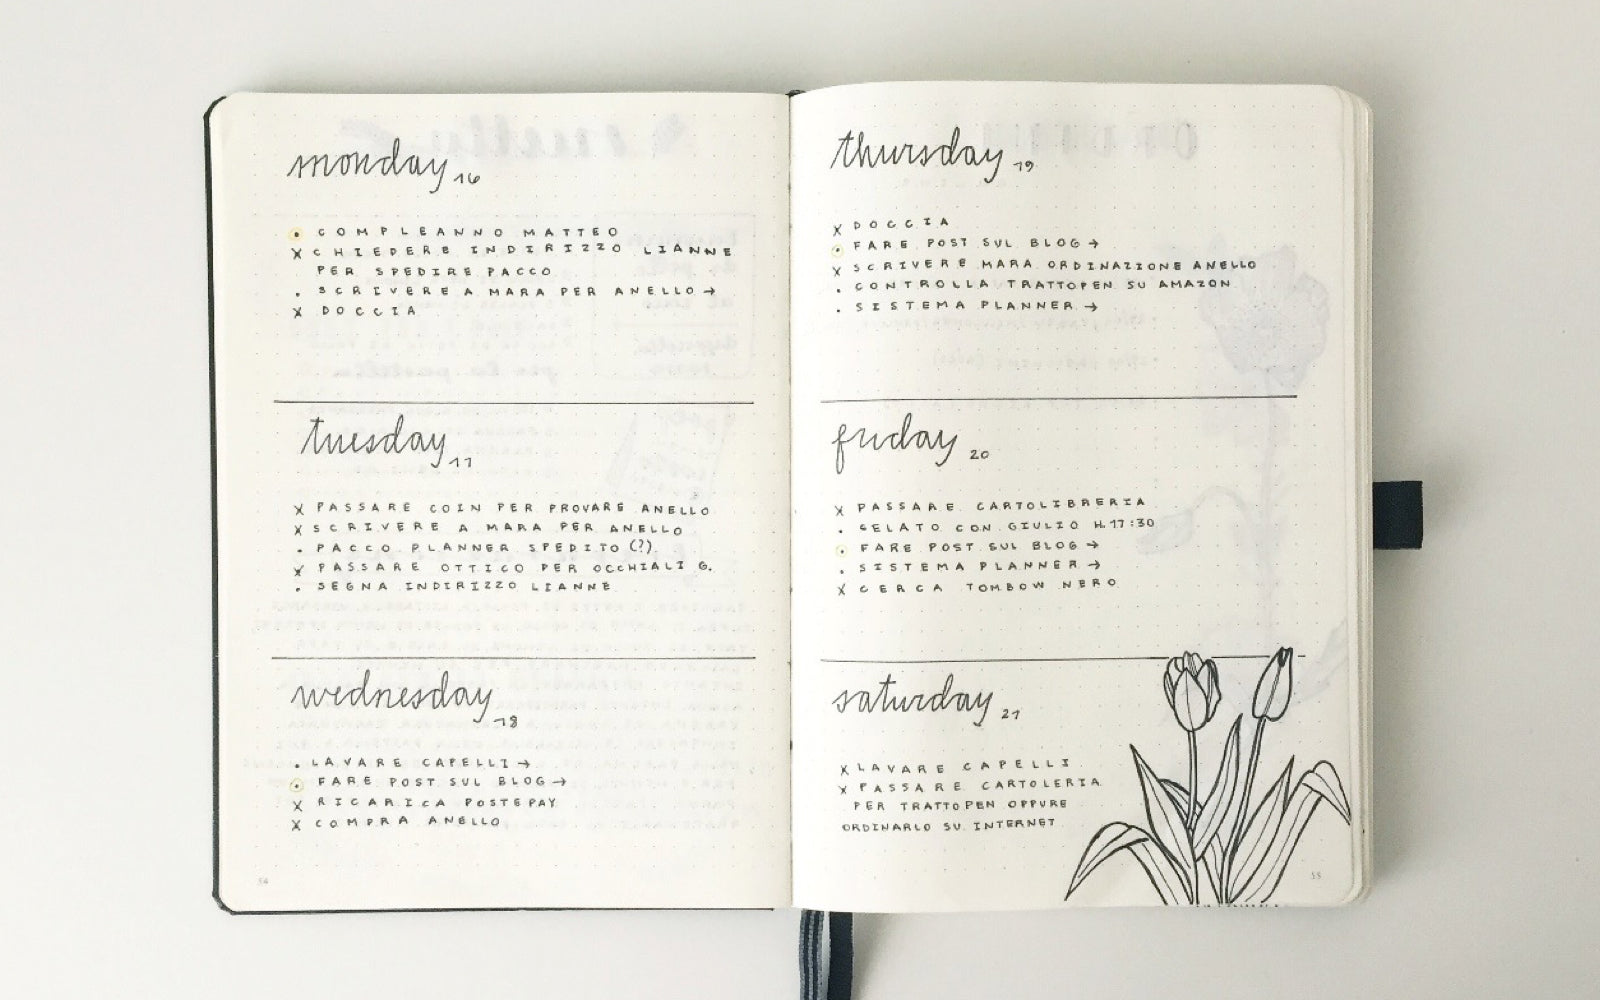 monday 16
• COMPLEANNO MATTEO
x CHIEDERE INDIRIZZO LIANNE
PER SPEDIRE PACCO
• SCRIVERE A MARA PER ANELLO →
x DOCCIA
tuesday 17
x PASSARE COIN PER PROVARE ANELLO
x SCRIVERE A MARA PER ANELLO
• PACCO PLANNER SPEDITO (?)
x PASSARE OTTICO PER OCCHIALI G.
• SEGNA INDIRIZZO LIANNE
wednesday 18
• LAVARE CAPELLI →
• FARE POST SUL BLOG →
x RICARICA POSTEPAY
x COMPRA ANELLO
54
thursday 19
x DOCCIA
• FARE POST SUL BLOG →
x SCRIVERE MARA ORDINAZIONE ANELLO
• CONTROLLA TRATTOPEN SU AMAZON
• SISTEMA PLANNER →
friday 20
x PASSARE CARTOLIBRERIA
• GELATO CON GIULIO H.17:30
• FARE POST SUL BLOG →
• SISTEMA PLANNER →
x CERCA TOMBOW NERO
saturday 21
x LAVARE CAPELLI
x PASSARE CARTOLERIA
PER TRATTOPEN OPPURE
ORDINARLO SU INTERNET
55